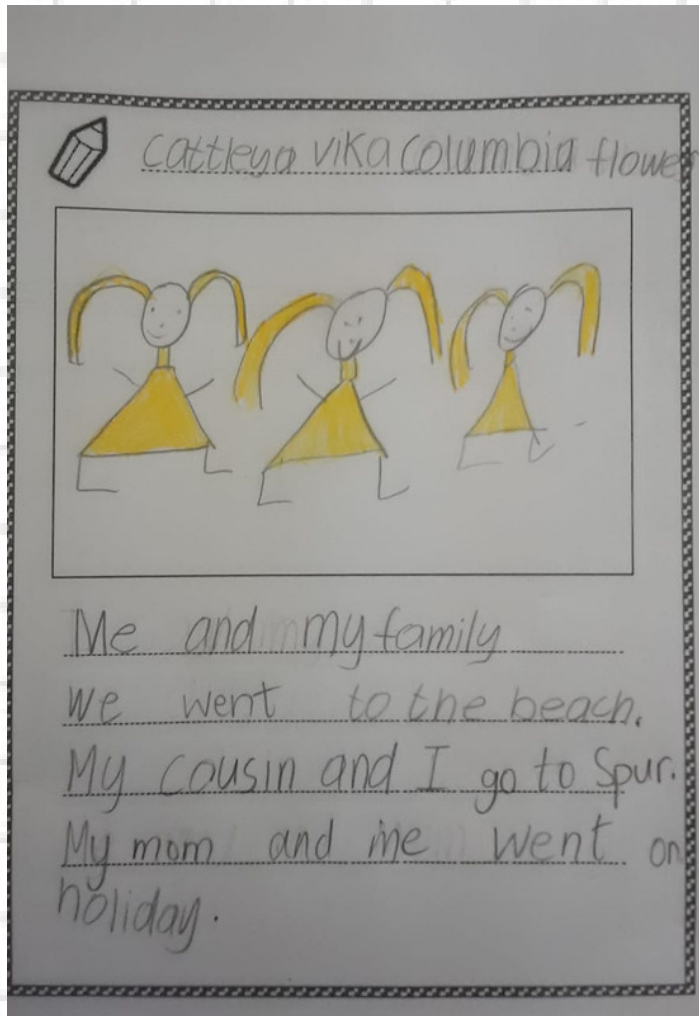 Cattleya vika columbia flower
Me and my family
We went to the beach.
My cousin and I go to Spur.
My mom and me went on
holiday.